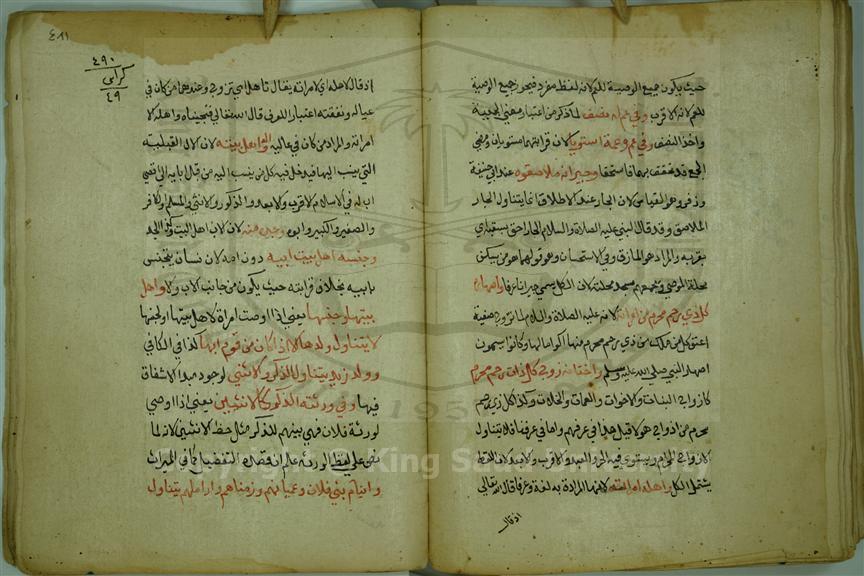 حيث يكون جميع الوصية للعم لانه لفظ مفرد فيحوز جميع الوصية
للعم لانه الاقرب وفي عم له نصف لما ذكر من اعتبار معنى الجمعية
واخذ النصف وفي عم وعمة استويا لان قرابتهما مستويان ومعنى
الجمع قد تحقق بهما فاستحقا وجيرانه ملاصقوه عند ابي حنيفة
وزفر وهو القياس لان الجار عند الاطلاق انما يتناول الجار
الملاصق وقد قال النبي عليه الصلاة والسلام الجار احق بسقبه اي
بقربه والمراد هو الملازق وفي الاستحسان وهو قولهما هو من يسكن
محلة الموصي ويجمعهم مسجد محلة لان الكل يسمى جيرانا عرفا واصهاره
كل ذي رحم محرم من امراته لانه عليه الصلاة والسلام لما تزوج صفية
اعتق كل من ملك من ذي رحم محرم منها اكراما لها وكانوا يسمون
اصهار النبي صلى الله عليه وسلم واختانه زوج كل ذات رحم محرم
كازواج البنات والاخوات والعمات والخالات وكذا كل ذي رحم
محرم من ازواجهن قيل هذا في عرفهم واما في عرفنا فلا يتناول
الا ازواج المحارم ويستوي فيه الحر والعبد والاقرب والابعد لان اللفظ
يشتمل الكل واهله امراته لانها المرادة به لغة وعرفا قال الله تعالى
اذ قال
٤٩٠
كراس
٤٩
اذ قال لاهله اي لامراته يقال تاهل اي تزوج وعندهما من كان في
عياله ونفقته اعتبارا للعرف قال الله تعالى فنجيناه واهله الا
امراته والمراد من كان في عياله واله اهل بيته لان الال القبيلة
التي ينسب اليها فيدخل فيه كل من ينسب اليه من قبل ابائه الى اقصى
اب له في الاسلام الاقرب والابعد والذكر والانثى والمسلم والكافر
والصغير والكبير وابوه وجده منه لان اهل البيت
وجنسه اهل بيت ابيه دون امه لان الانسان يتجنس
بابيه بخلاف قرابته حيث يكون من جانب الاب والام واهل
بيتها وجنسها يعني اذا اوصت امراة لاهل بيتها او لجنسها
لا يتناول ولدها الا اذا كان من قوم ابيها كذا في الكافي
وولد زيد يتناول الذكر والانثى لوجود مبدا الاشتقاق
فيها وفي ورثته الذكر كالانثيين يعني اذا اوصى
لورثة فلان فهي بينهم للذكر مثل حظ الانثيين لانه لما
نص على لفظ الورثة علم ان قصده التفضيل كما في الميراث
وايتام بني فلان وعميانهم وزمناهم واراملهم يتناول